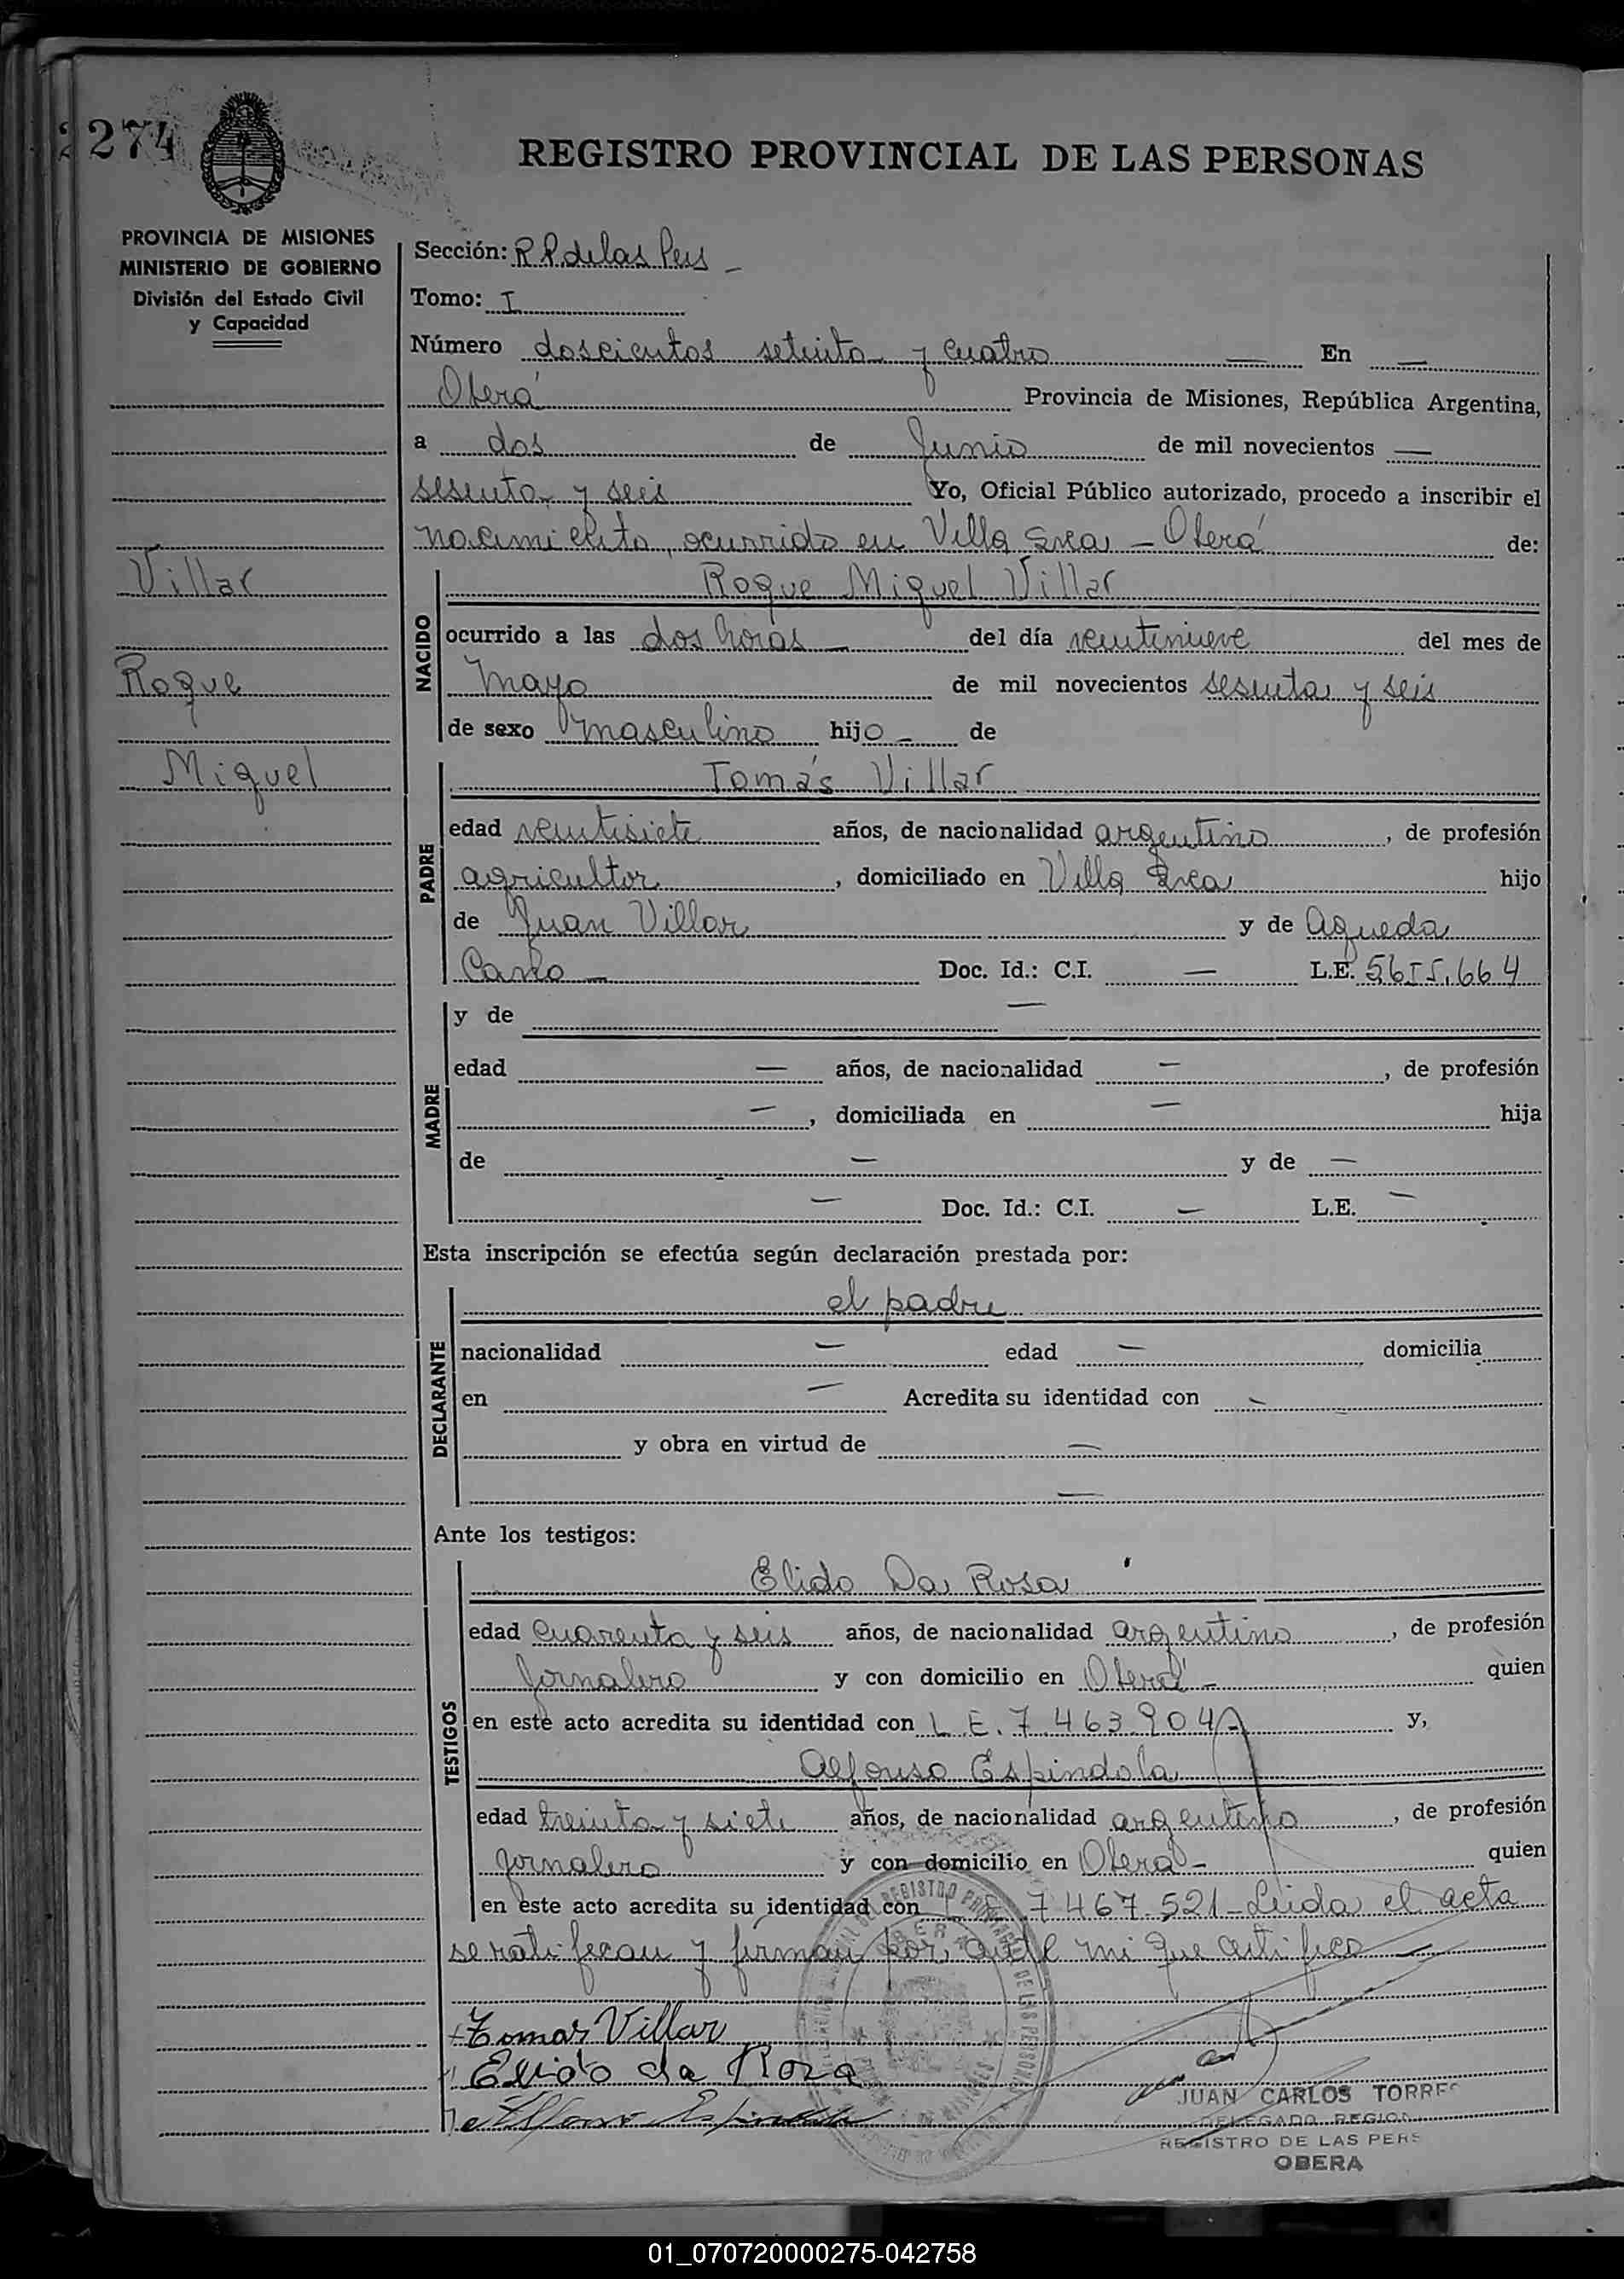 2274
REGISTRO PROVINCIAL DE LAS PERSONAS
PROVINCIA DE MISIONES
MINISTERIO DE GOBIERNO
División del Estado Civil
y Capacidad
Villar
Roque
Miguel
Sección: R.P. de las Pers -
Tomo: I
Número doscientos setenta y cuatro — En —
Oberá Provincia de Misiones, República Argentina,
a dos de Junio de mil novecientos —
sesenta y seis Yo, Oficial Público autorizado, procedo a inscribir el
nacimiento, ocurrido en Villa - Oberá de:
NACIDO
Roque Miguel Villar
ocurrido a las dos horas — del día veintinueve del mes de
Mayo de mil novecientos sesenta y seis
de sexo masculino hijo - de
PADRE
Tomás Villar
edad veintisiete años, de nacionalidad argentino, de profesión
agricultor, domiciliado en Villa hijo
de Juan Villar y de Agueda
Doc. Id.: C.I. — L.E. 5655.664
MADRE
y de —
edad — años, de nacionalidad —, de profesión
—, domiciliada en — hija
de — y de —
— Doc. Id.: C.I. — L.E. —
Esta inscripción se efectúa según declaración prestada por:
DECLARANTE
el padre
nacionalidad — edad — domicilia
en — Acredita su identidad con —
y obra en virtud de —
—
Ante los testigos:
TESTIGOS
Elido Da Rosa
edad cuarenta y seis años, de nacionalidad argentino, de profesión
Jornalero y con domicilio en Oberá - quien
en este acto acredita su identidad con L.E. 7.463.904 y,
Alfonso Espindola
edad treinta y siete años, de nacionalidad argentino, de profesión
jornalero y con domicilio en Oberá - quien
en este acto acredita su identidad con 7.467.521 - Leida el acta
se ratifican y firman por ante mi que certifico —
Tomas Villar
Elido da Roza
Alfonso Espindola
JUAN CARLOS TORRES
DELEGADO REGION
REGISTRO DE LAS PERS
OBERA
01_070720000275-042758